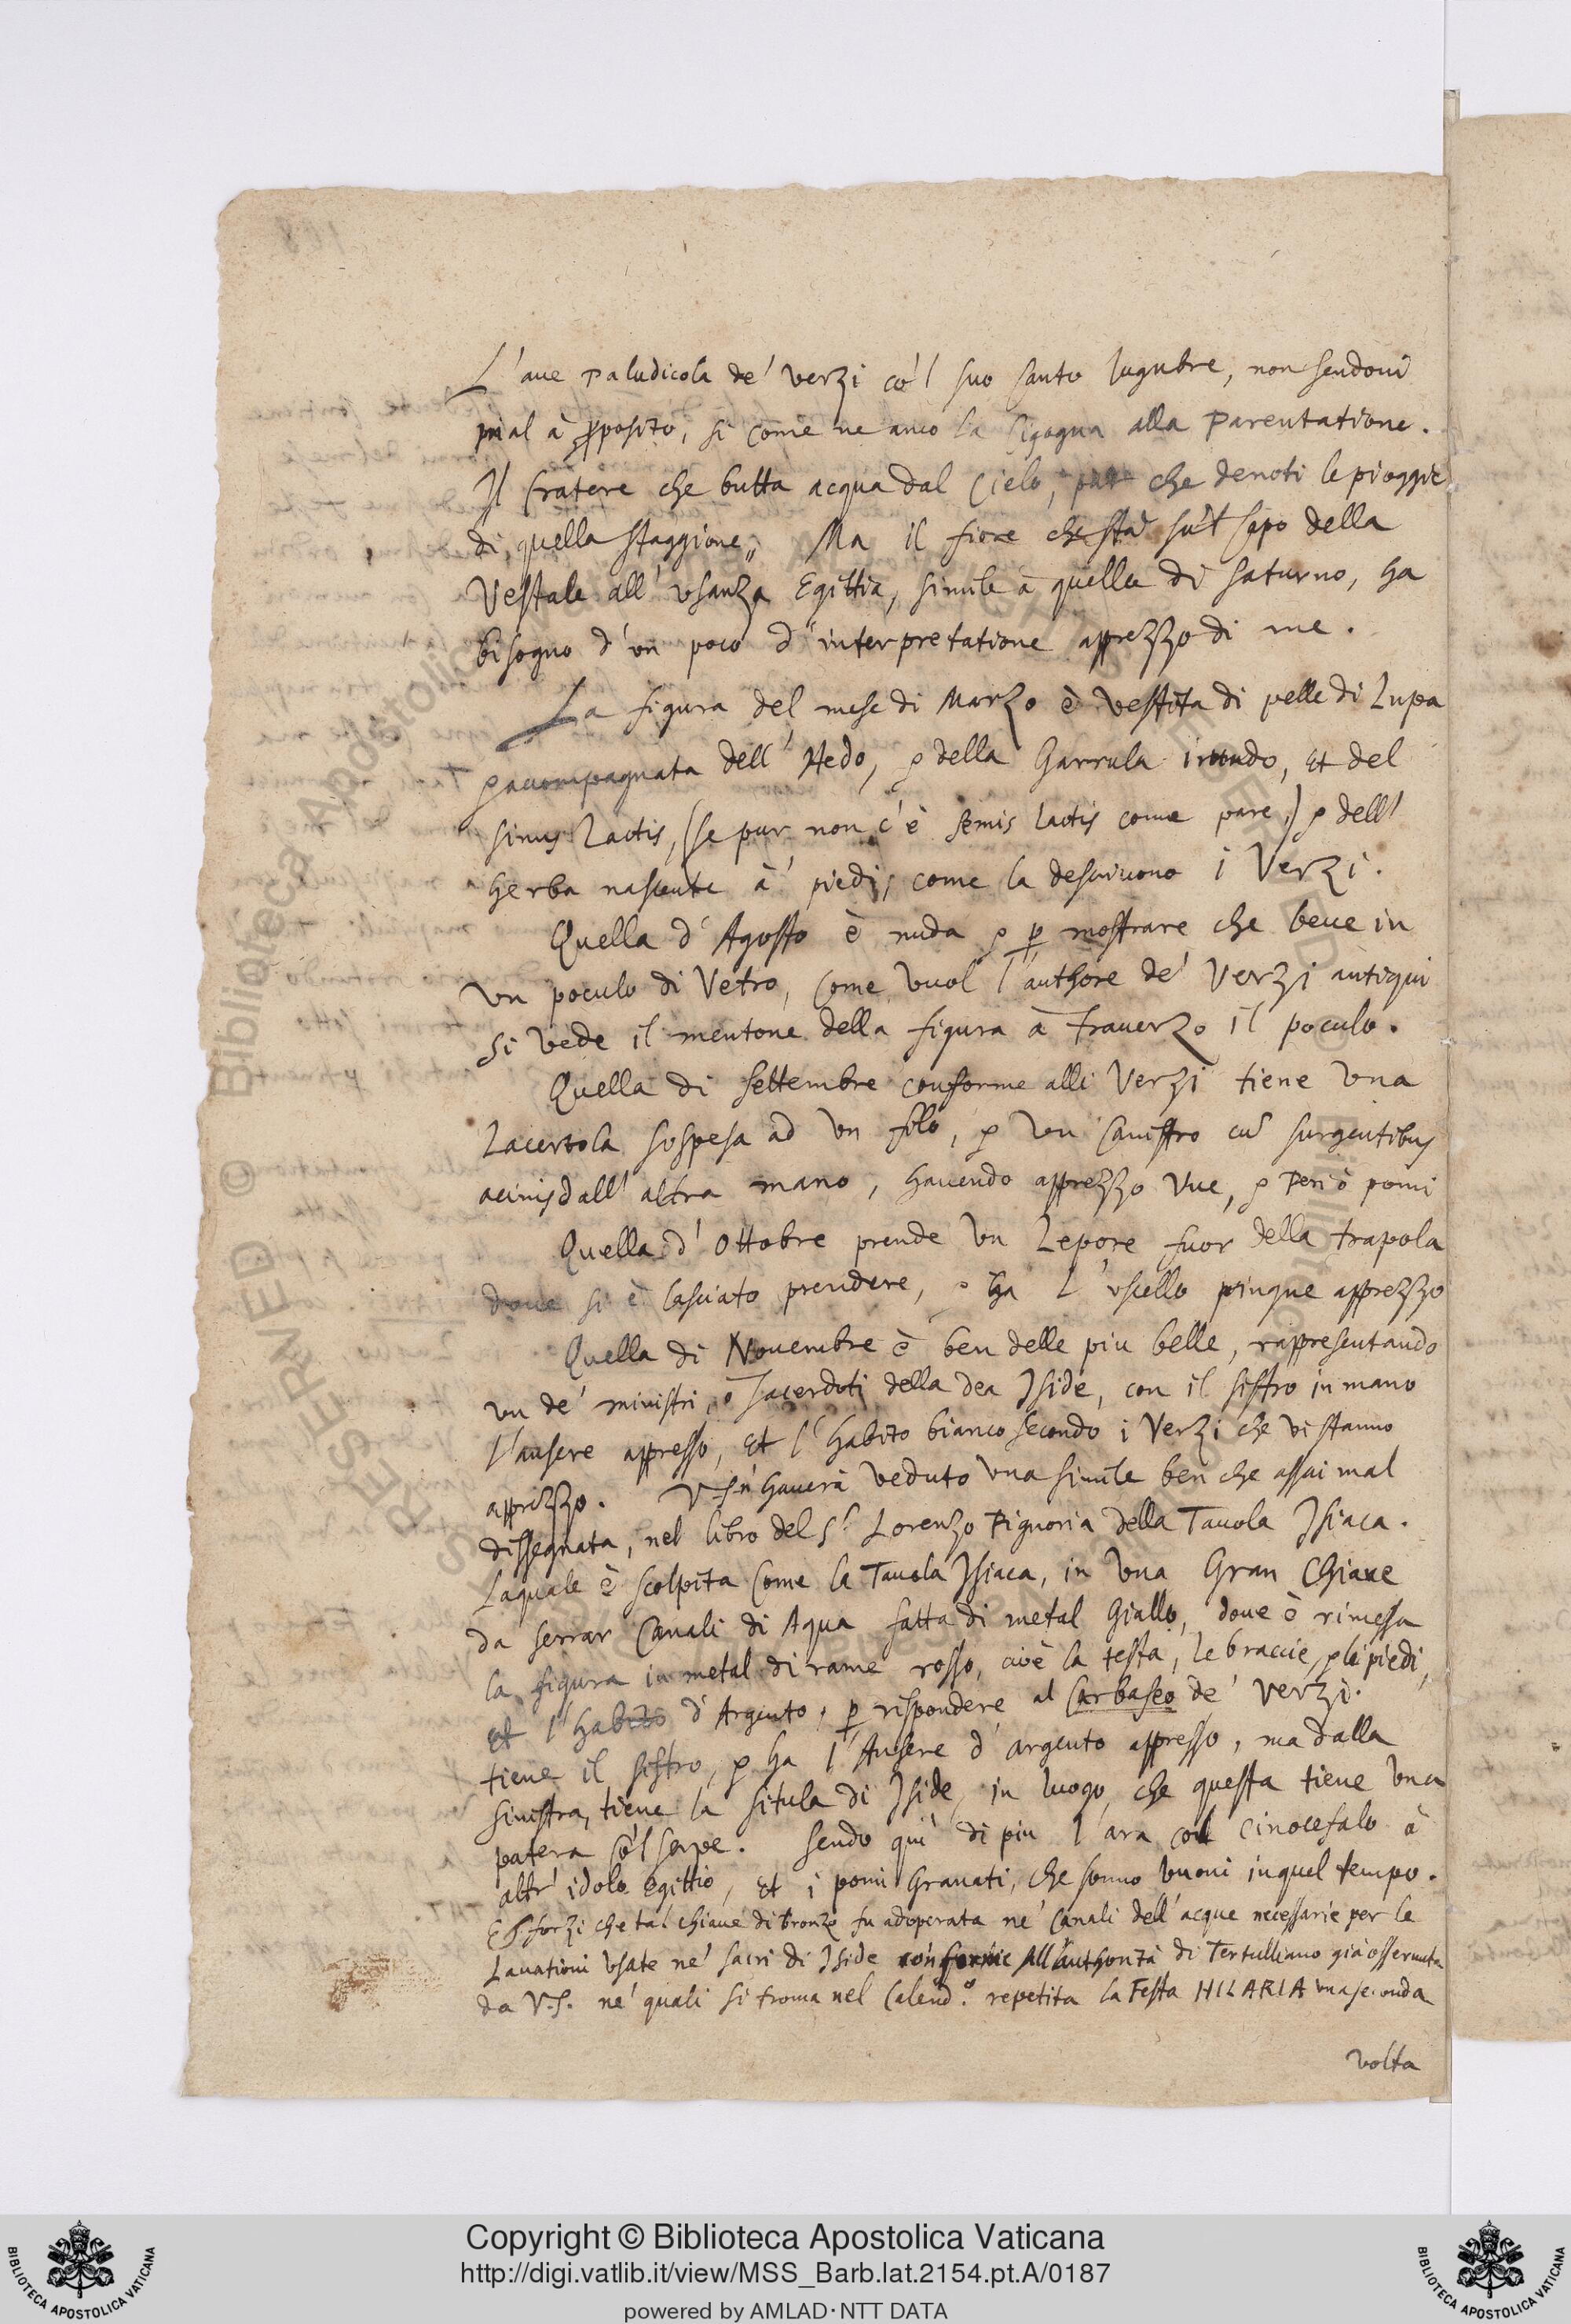 L'aue paludicola de' verzi co'l suo santo lugubre, non sendoui
mal à proposito, si come ne anco la Cigogna alla Parentatione.
Il Cratere che butta acqua dal Cielo, par che denoti le pioggie
di quella staggione, Ma il fiore che stà sù'l capo della
Vestale all'vsanza Egittia, simile à quella di saturno, ha
bisogno d'vn poco d'interpretatione apprezzo di me.
La figura del mese di Marzo è vestita di pelle di Lupa
& accompagnata dell'Hedo, & della Garrula irundo, et del
sinus Lactis, (se pur non c'è semis lactis come pare,) & dell'
herba nascente à piedi, come la descriuono i Verzi.
Quella d'Agosto è nuda & p mostrare che beue in
vn poculo di Vetro, come vuol l'authore de' Verzi antiqui
si vede il mentone della figura à trauerzo il poculo.
Quella di settembre conforme alli Verzi tiene vna
Lacertola sospesa ad vn filo, & vn Canistro cū surgentibus
acinis dall'altra mano, hauendo apprezzo Vue, & pomi
Quella d'Ottobre prende vn Lepore fuor della trapola
doue si è lasciato prendere, & ha l'vscello pingue apprezzo
Quella di Nouembre è ben delle piu belle, rappresentando
vn de' ministri, o sacerdoti della dea Iside, con il sistro in mano
l'ansere appresso, et l'habito bianco secondo i Verzi che vi stanno
apprezzo. V.S. n'hauerà veduto vna simile ben che assai mal
dissegnata, nel libro del Sr Lorenzo Pignoria della Tauola Isiaca.
Laquale è scolpita come la Tauola Isiaca, in vna Gran Chiaue
da serrar Canali di Aqua fatta di metal Giallo, doue è rimessa
la figura in metal di rame rosso, cioè la testa, le braccie, & li piedi,
et l'habito d'Argento, p rispondere al Carbaseo de' verzi.
tiene il sistro, & ha l'Ansere d'argento appresso, ma dalla
sinistra, tiene la situla di Iside, in luogo, che questa tiene vna
patera co'l serpe. Sendo qui di piu l'ara col cinocefalo ò
altr'idolo egittio, et i pomi Granati, che sonno buoni in quel tempo.
E forzi che tal chiaue di bronzo fu adoperata ne' Canali dell'acque necessarie per le
Lauationi vsate ne' sacri di Iside conforme all'authorità di Tertulliano già osseruata
da V.S. ne' quali si troua nel Calend.o repetita la Festa HILARIA vna seconda
volta
Copyright © Biblioteca Apostolica Vaticana
http://digi.vatlib.it/view/MSS_Barb.lat.2154.pt.A/0187
powered by AMLAD·NTT DATA